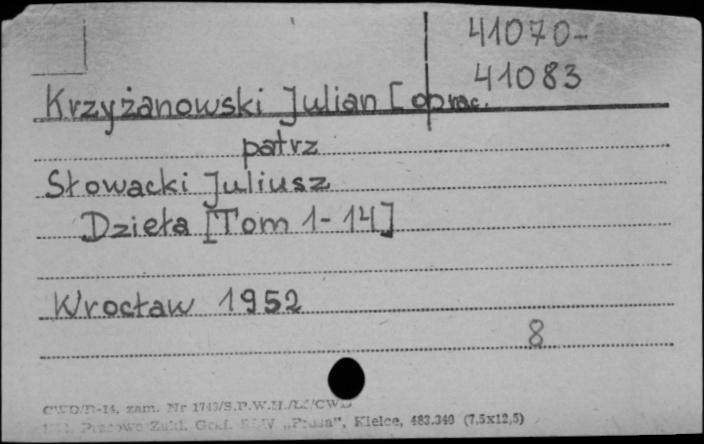 41070-
41083
Krzyżanowski Julian [oprac.
patrz
Słowacki Juliusz
Dzieła [Tom 1-14]
Wrocław 1952
8
zam. Nr 1743/S.P.W.H.
Zakł. Graf. „Prasa", Kielce, 483.340 (7,5x12,5)